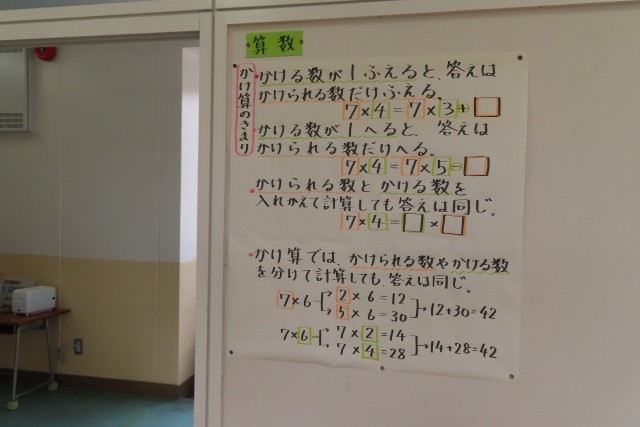 算数
かけ算のきまり
かける数が1ふえると、答えは
かけられる数だけふえる。
7×4=7×3+□
かける数が1へると、答えは
かけられる数だけへる。
7×4=7×5-□
かけられる数とかける数を
入れかえて計算しても答えは同じ。
7×4=□×□
かけ算では、かけられる数やかける数
を分けて計算しても、答えは同じ。
7×6 2×6=12
5×6=30 →12+30=42
7×6 7×2=14
7×4=28 →14+28=42